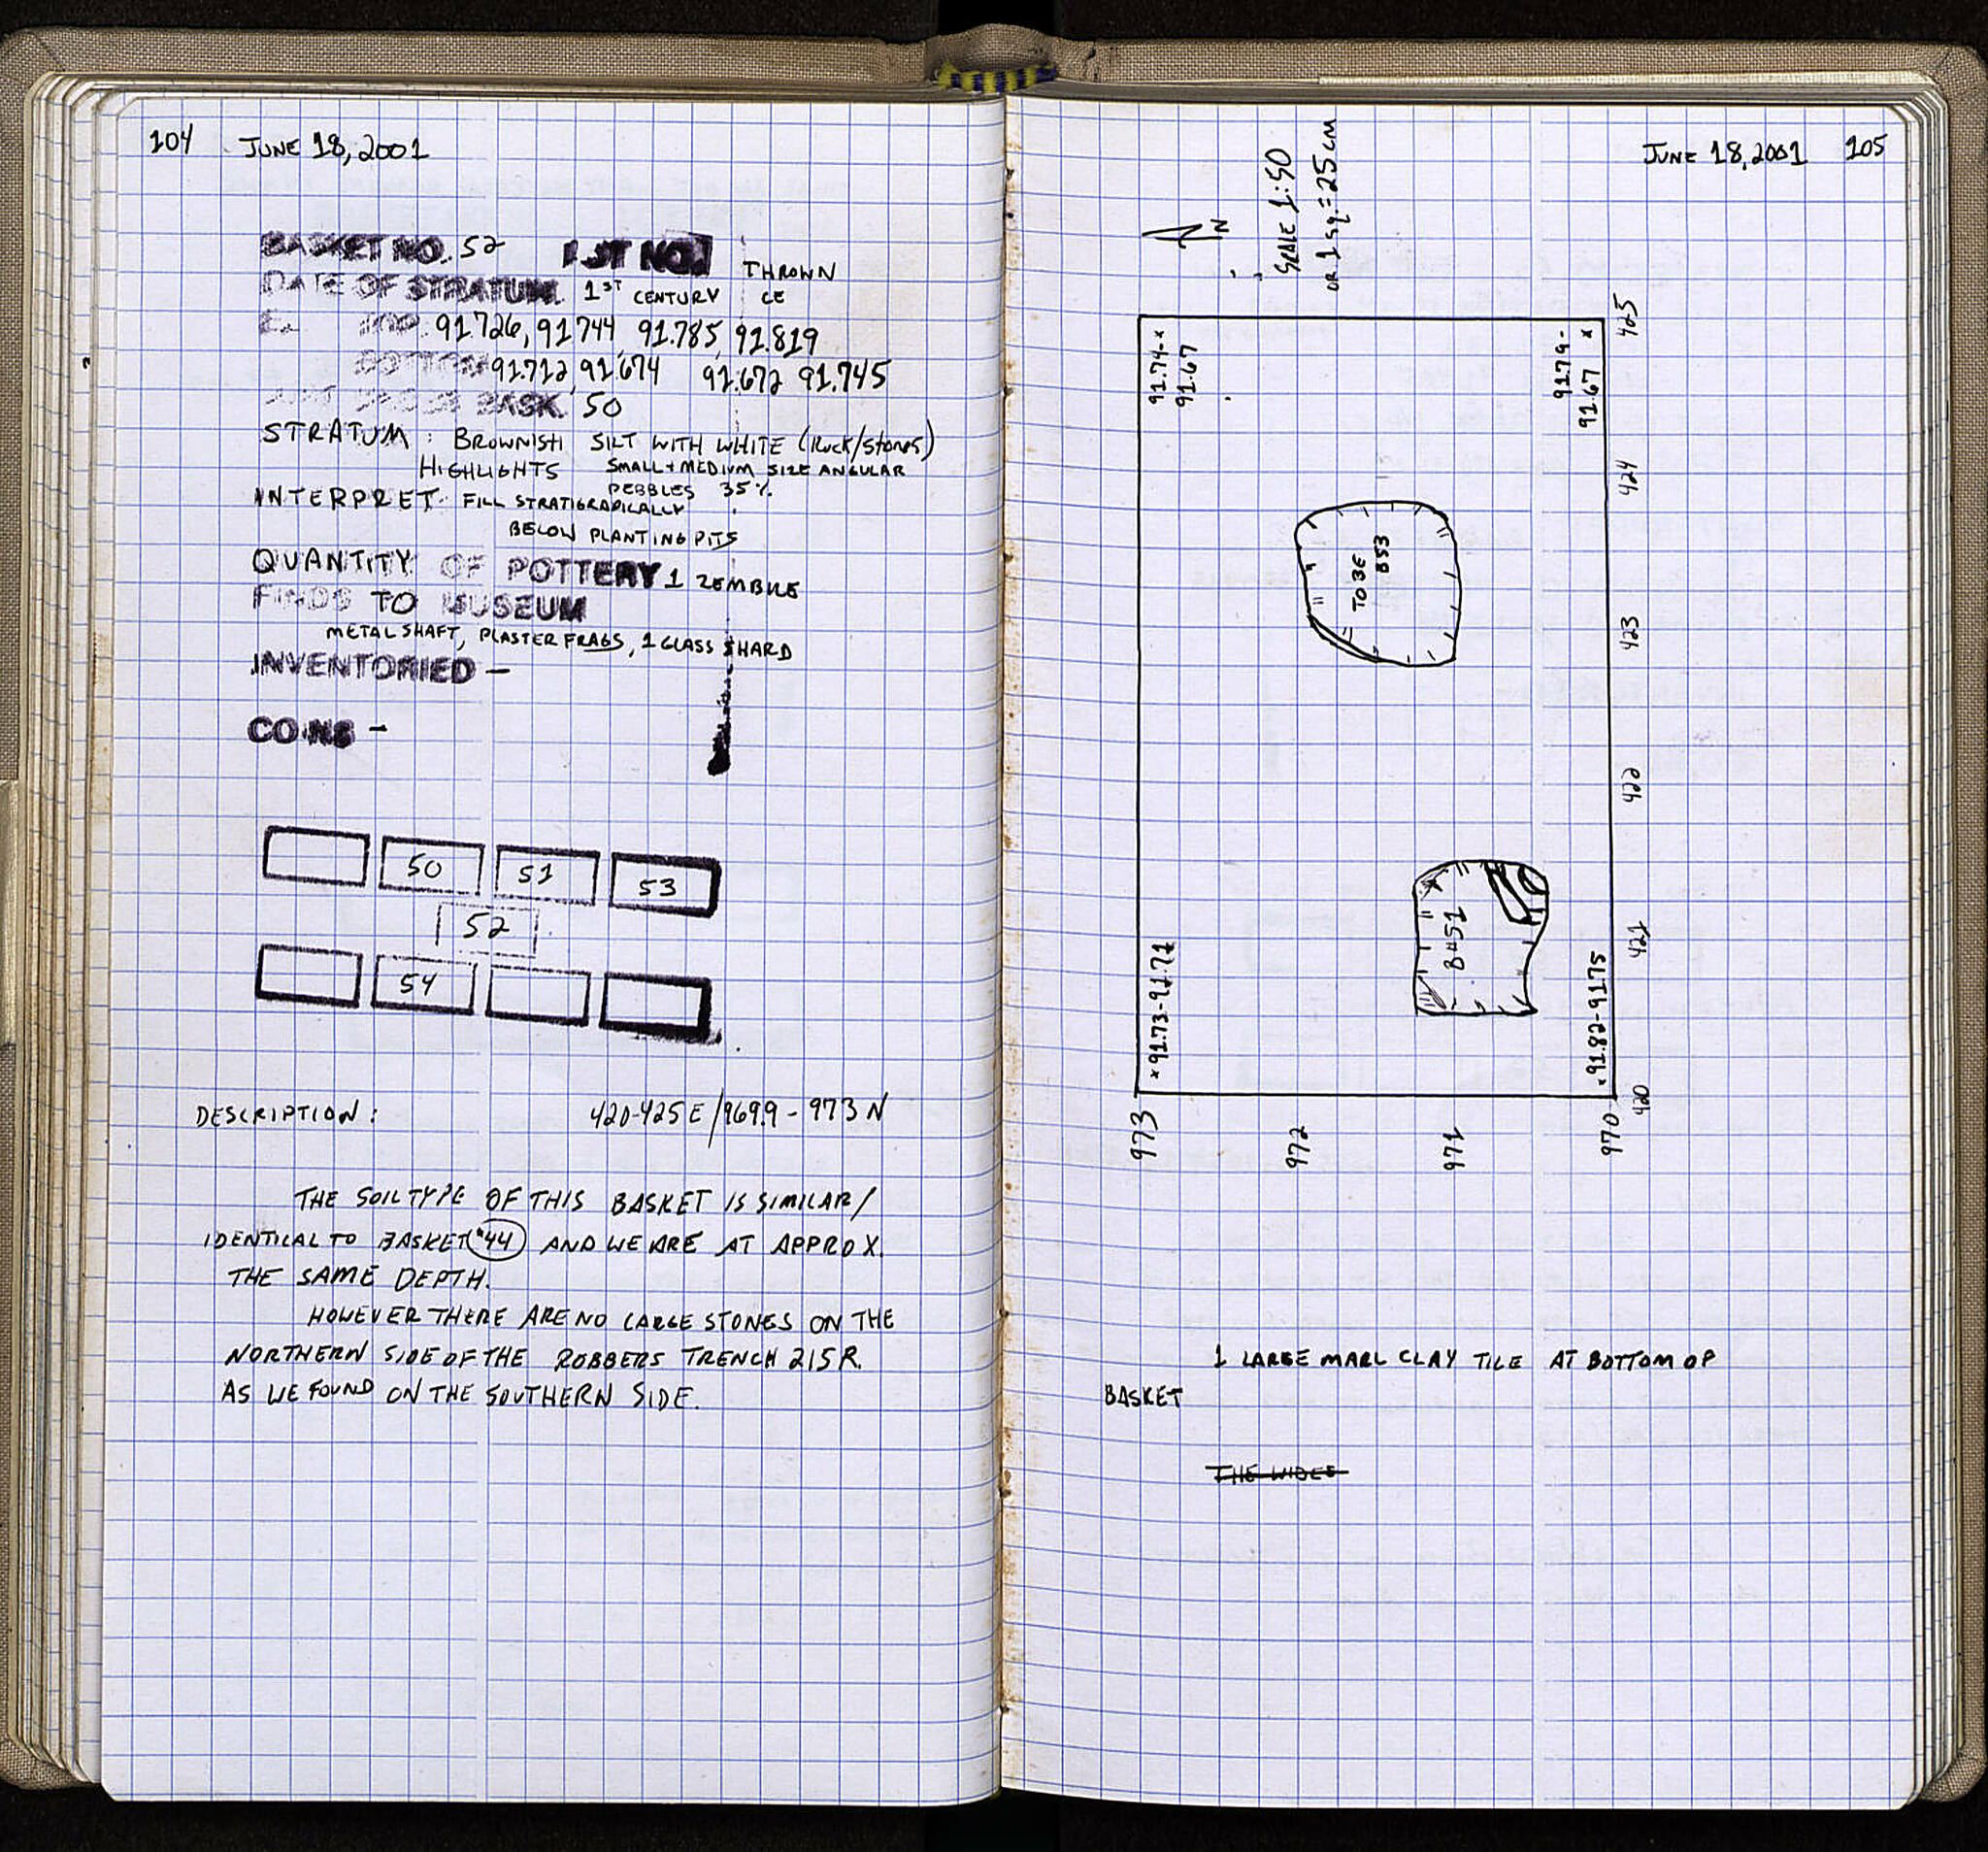 104 JUNE 18, 2001
BASKET NO. 52 LOT NO. THROWN
DATE OF STRATUM 1ST CENTURY CE
91.726, 91.744, 91.785, 91.819
BOTTOM 91.712, 91.674 91.672 91.745
BASK. 50
STRATUM: BROWNISH SILT WITH WHITE (Rock/stones)
HIGHLIGHTS SMALL + MEDIUM SIZE ANGULAR
PEBBLES 35%
INTERPRET. FILL STRATIGRAPICALLY
BELOW PLANTING PITS
QUANTITY OF POTTERY 1 ZEMBILE
FINDS TO MUSEUM
METAL SHAFT, PLASTER FRAGS, 1 GLASS SHARD
INVENTORIED -
COINS -
50 51 53
52
54
DESCRIPTION: 420-425 E / 969.9 - 973 N
THE SOIL TYPE OF THIS BASKET IS SIMILAR/
IDENTICAL TO BASKET #44 AND WE ARE AT APPROX.
THE SAME DEPTH.
HOWEVER THERE ARE NO LARGE STONES ON THE
NORTHERN SIDE OF THE ROBBERS TRENCH 215R.
AS WE FOUND ON THE SOUTHERN SIDE.
JUNE 18, 2001 105
N
SCALE 1:50
OR 1 sq. = 25 cm
91.74-x
91.67
91.79-
91.67 x
425
424
TO BE
B53
423
422
B#51
421
x 91.73-91.71
x 91.82-91.75
420
973
972
971
970
1 LARGE MARL CLAY TILE AT BOTTOM OF
BASKET